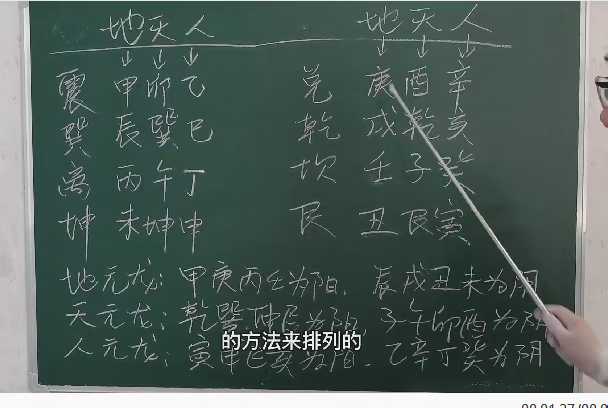 地天人 地天人
↓↓↓ ↓↓↓
震 甲卯乙 兑 庚酉辛
巽 辰巽巳 乾 戌乾亥
离 丙午丁 坎 壬子癸
坤 未坤申 艮 丑艮寅
地元龙：甲庚丙壬为阳、辰戌丑未为阴
天元龙：乾巽坤艮为阳，子午卯酉为阴
人元龙：寅申巳亥为阳、乙辛丁癸为阴
的方法来排列的